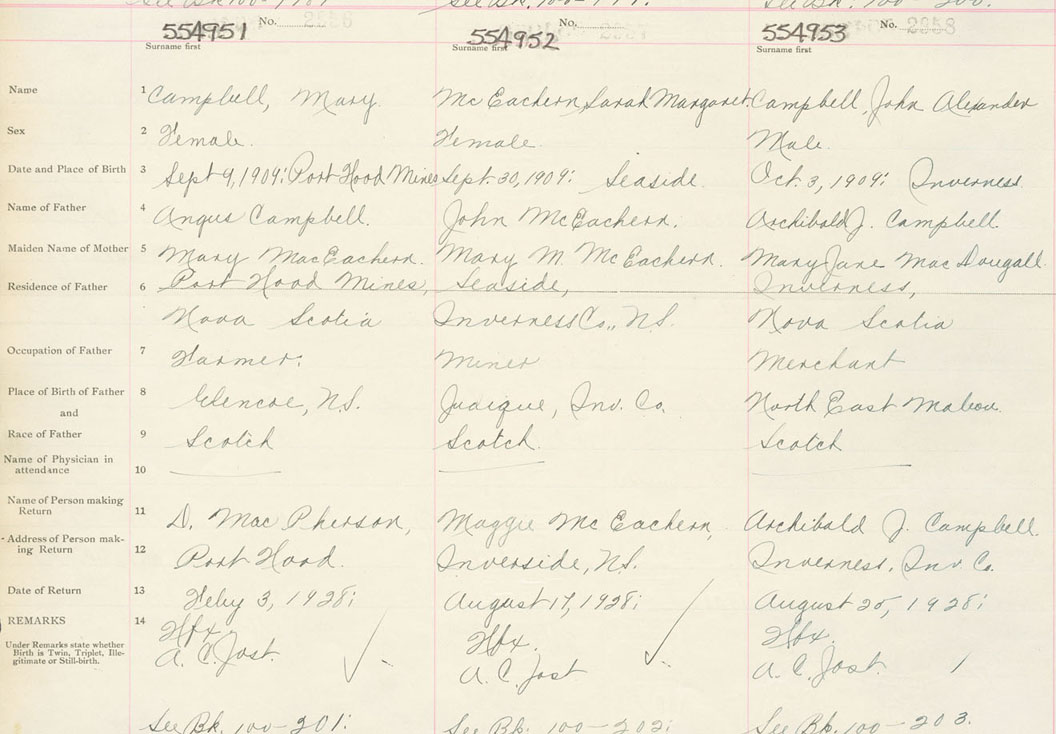 No. 2858
No.
No. 2858
554951
554952
554953
Surname first
Surname first
Surname first
Name 1 Campbell, Mary. Mc Eachern, Sarah Margaret. Campbell, John Alexander
Sex 2 Female. Female. Male.
Date and Place of Birth 3 Sept 9, 1909: Port Hood Mines Sept. 30, 1909: Seaside. Oct. 3, 1909: Inverness.
Name of Father 4 Angus Campbell. John McEachern. Archibald J. Campbell.
Maiden Name of Mother 5 Mary MacEachern. Mary M. McEachern. Mary Jane MacDougall.
Residence of Father 6 Port Hood Mines, Seaside, Inverness,
Nova Scotia Inverness Co., N.S. Nova Scotia
Occupation of Father 7 Farmer: Miner Merchant
Place of Birth of Father 8 Glencoe, N.S. Judique, Inv. Co. North East Mabou.
and
Race of Father 9 Scotch Scotch. Scotch
Name of Physician in
attendance 10
Name of Person making
Return 11 D. MacPherson, Maggie McEachern, Archibald J. Campbell.
Address of Person mak-
ing Return 12 Port Hood. Inverside, N.S. Inverness, Inv. Co.
Date of Return 13 Feby 3, 1928: August 17, 1928: August 25, 1928:
REMARKS 14 Hfx. Hfx. Hfx.
Under Remarks state whether
Birth is Twin, Triplet, Ille-
gitimate or Still-birth.
A. C. Jost. A. C. Jost A. C. Jost
See Bk. 100-201: See Bk. 100-202: See Bk. 100-203.